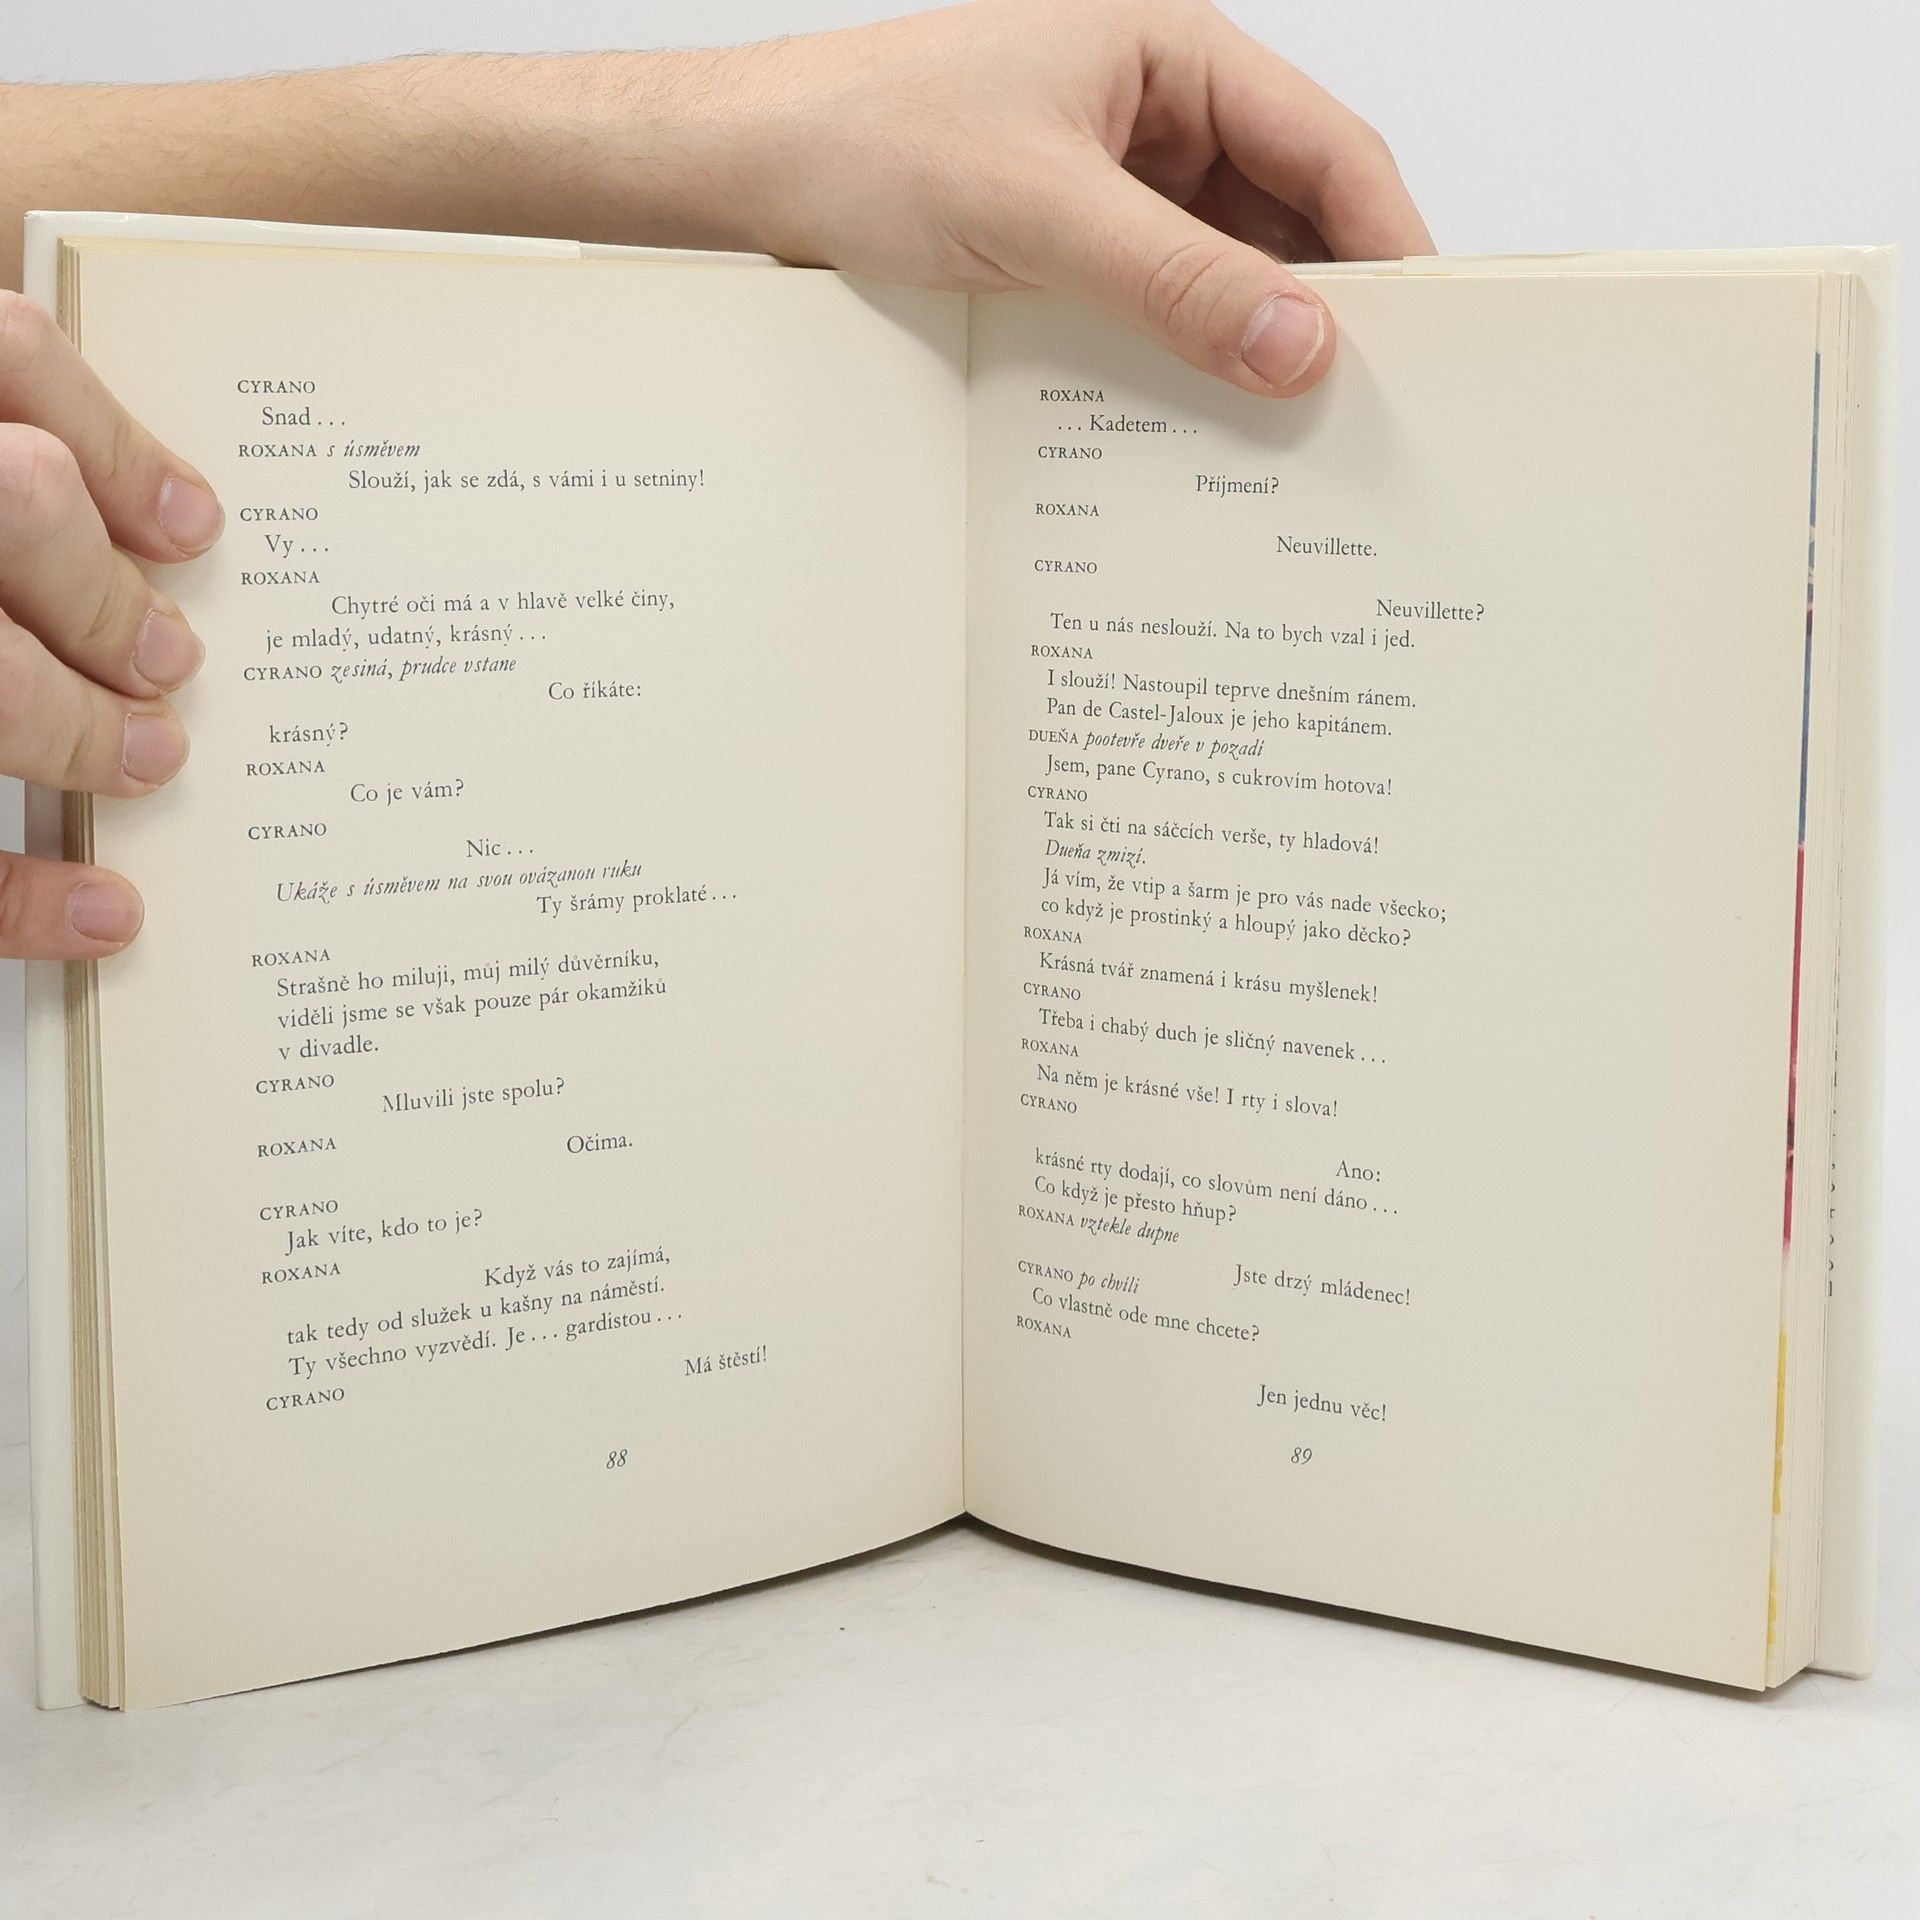 CYRANO
Snad...
ROXANA s úsměvem
Slouží, jak se zdá, s vámi i u setniny!
CYRANO
Vy...
ROXANA
Chytré oči má a v hlavě velké činy,
je mladý, udatný, krásný...
CYRANO zesiná, prudce vstane
Co říkáte:
krásný?
ROXANA
Co je vám?
CYRANO
Nic...
Ukáže s úsměvem na svou ovázanou ruku
Ty šrámy proklaté...
ROXANA
Strašně ho miluji, můj milý důvěrníku,
viděli jsme se však pouze pár okamžiků
v divadle.
CYRANO
Mluvili jste spolu?
ROXANA
Očima.
CYRANO
Jak víte, kdo to je?
ROXANA
Když vás to zajímá,
tak tedy od služek u kašny na náměstí.
Ty všechno vyzvědí. Je... gardistou...
CYRANO
Má štěstí!
88
ROXANA
...Kadetem...
CYRANO
Příjmení?
ROXANA
Neuvillette.
CYRANO
Neuvillette?
Ten u nás neslouží. Na to bych vzal i jed.
ROXANA
I slouží! Nastoupil teprve dnešním ránem.
Pan de Castel-Jaloux je jeho kapitánem.
DUEŇA pootevře dveře v pozadí
Jsem, pane Cyrano, s cukrovím hotova!
CYRANO
Tak si čti na sáčcích verše, ty hladová!
Dueňa zmizí.
Já vím, že vtip a šarm je pro vás nade všecko;
co když je prostinký a hloupý jako děcko?
ROXANA
Krásná tvář znamená i krásu myšlenek!
CYRANO
Třeba i chabý duch je sličný navenek...
ROXANA
Na něm je krásné vše! I rty i slova!
CYRANO
Ano:
krásné rty dodají, co slovům není dáno...
Co když je přesto hňup?
ROXANA vztekle dupne
Jste drzý mládenec!
CYRANO po chvíli
Co vlastně ode mne chcete?
ROXANA
Jen jednu věc!
89